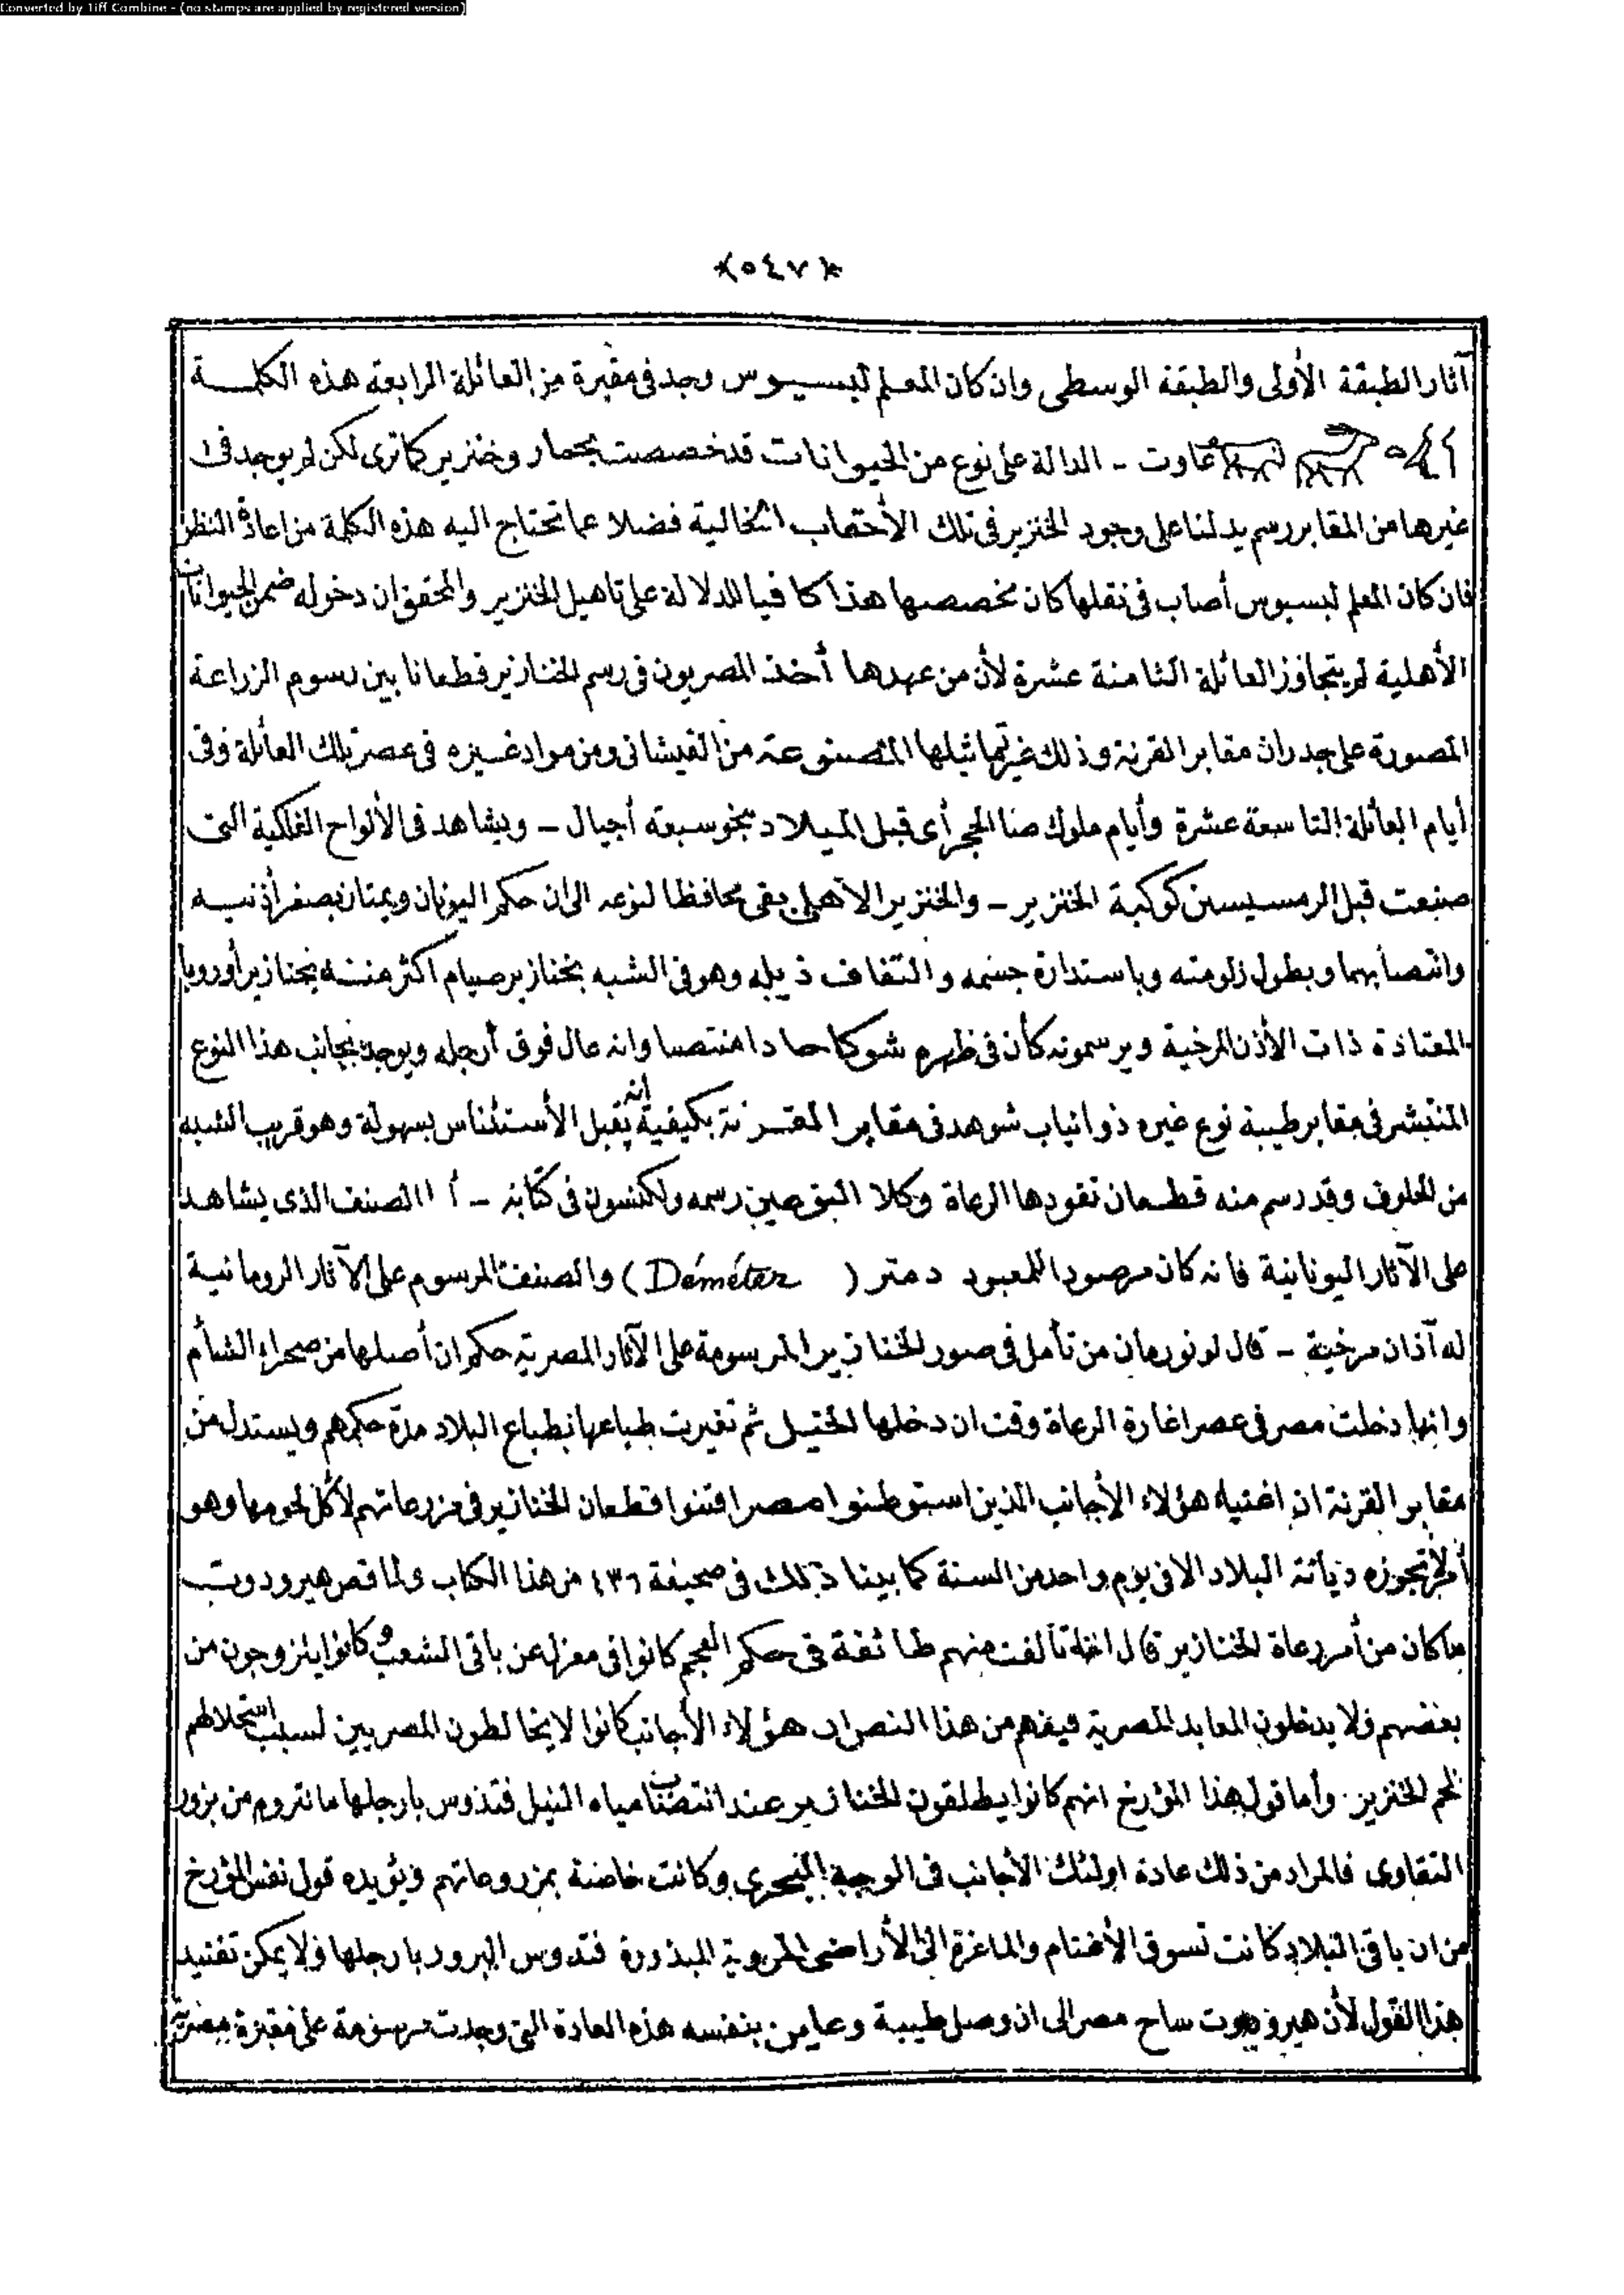 Converted by Tiff Combine - (no stamps are applied by registered version)
﴿٥٤٧﴾
آثار الطبقة الأولى والطبقة الوسطى وان كان المعلم لبسيوس وجد فى مقبرة من العائلة الرابعة هذه الكلمة
عاوت - الدالة على نوع من الحيوانات قد خصصت بحمار وخنزير كما ترى لكن لم يوجد فى
غيرها من المقابر رسم يدلنا على وجود الخنزير فى تلك الأحقاب الخالية فضلا عما تحتاج اليه هذه الكلمة من اعادة النظر
فان كان المعلم لبسيوس أصاب فى نقلها كان مخصصها هذا كافيا للدلالة على تاهيل الخنزير والمحقق ان دخوله ضمن الحيوانات
الأهلية لم يتجاوز العائلة الثامنة عشرة لأن من عهدها أخذ المصريون فى رسم الخنازير قطعانا بين رسوم الزراعة
المصورة على جدران مقابر القرنة وذلك غير تماثيلها المصنوعة من القيشانى ومن مواد غيره فى عصر تلك العائلة وفى
أيام العائلة التاسعة عشرة وأيام ملوك صا الحجر أى قبل الميلاد بنحو سبعة أجيال - ويشاهد فى الألواح الفلكية التى
صنعت قبل الرمسيسين كوكبة الخنزير - والخنزير الأهلى بقى محافظا لنوعه الى ان حكم اليونان ويمتاز بصغر أذنيه
وانتصابهما وبطول زلومته وباستدارة جسمه والتفاف ذيله وهو فى الشبه بخنازير صيام اكثر منه بخنازير أوروپا
المعتادة ذات الأذن المرخية ويرسمونه كأن فى ظهره شوكا حادا منتصبا وانه عال فوق أرجله ويوجد بجانب هذا النوع
المنتشر فى مقابر طيبة نوع غيره ذو انياب شوهد فى مقابر القرنة بكيفية انه يقبل الأستئناس بسهولة وهو قريب الشبه
من الحلوف وقد رسم منه قطعان تقودها الرعاة وكلا النوعين رسمه ولكنسون فى كتابه - أما الصنف الذى يشاهد
على الآثار اليونانية فانه كان مرصودا للمعبود دمتر ( Déméter ) والصنف المرسوم على الآثار الرومانية
له آذان مرخية - قال لونورمان من تأمل فى صور الخنازير المرسومة على الآثار المصرية حكم ان أصلها من صحراء الشأم
وانها دخلت مصر فى عصر اغارة الرعاة وقت ان دخلها الخيل ثم تغيرت طباعها بطباع البلاد مدة حكمهم ويستدل من
مقابر القرنة ان اغنياء هؤلاء الأجانب الذين استوطنوا مصر اقتنوا قطعان الخنازير فى مزرعاتهم لأكل لحومها وهو
أمر لا تجوزه ديانة البلاد الا فى يوم واحد من السنة كما بينا ذلك فى صحيفة ٤٣٦ من هذا الكتاب ولما قص هيرودوت
ما كان من أمر رعاة الخنازير قال انه تألفت منهم طائفة فى حكم العجم كانوا فى معزل عن باقى الشعب وكانوا يتزوجون من
بعضهم ولا يدخلون المعابد المصرية فيفهم من هذا النص ان هؤلاء الأجانب كانوا لا يخالطون المصريين لسبب استحلالهم
لحم الخنزير. وأما قول هذا المؤرخ انهم كانوا يطلقون الخنازير عند انتضاب مياه النيل فتدوس بارجلها ما تروم من بزور
التقاوى فالمراد من ذلك عادة اولئك الأجانب فى الوجه البحرى وكانت خاصة بمزروعاتهم ويؤيده قول نفس المؤرخ
من ان باقى البلاد كانت تسوق الأغنام والماعزة الى الأراضى المروية المبذورة فتدوس البزور بارجلها ولا يمكن تفنيد
هذا القول لأن هيرودوت ساح مصر الى ان وصل طيبة وعاين بنفسه هذه العادة التى وجدت مرسومة على مقبرة مصرية